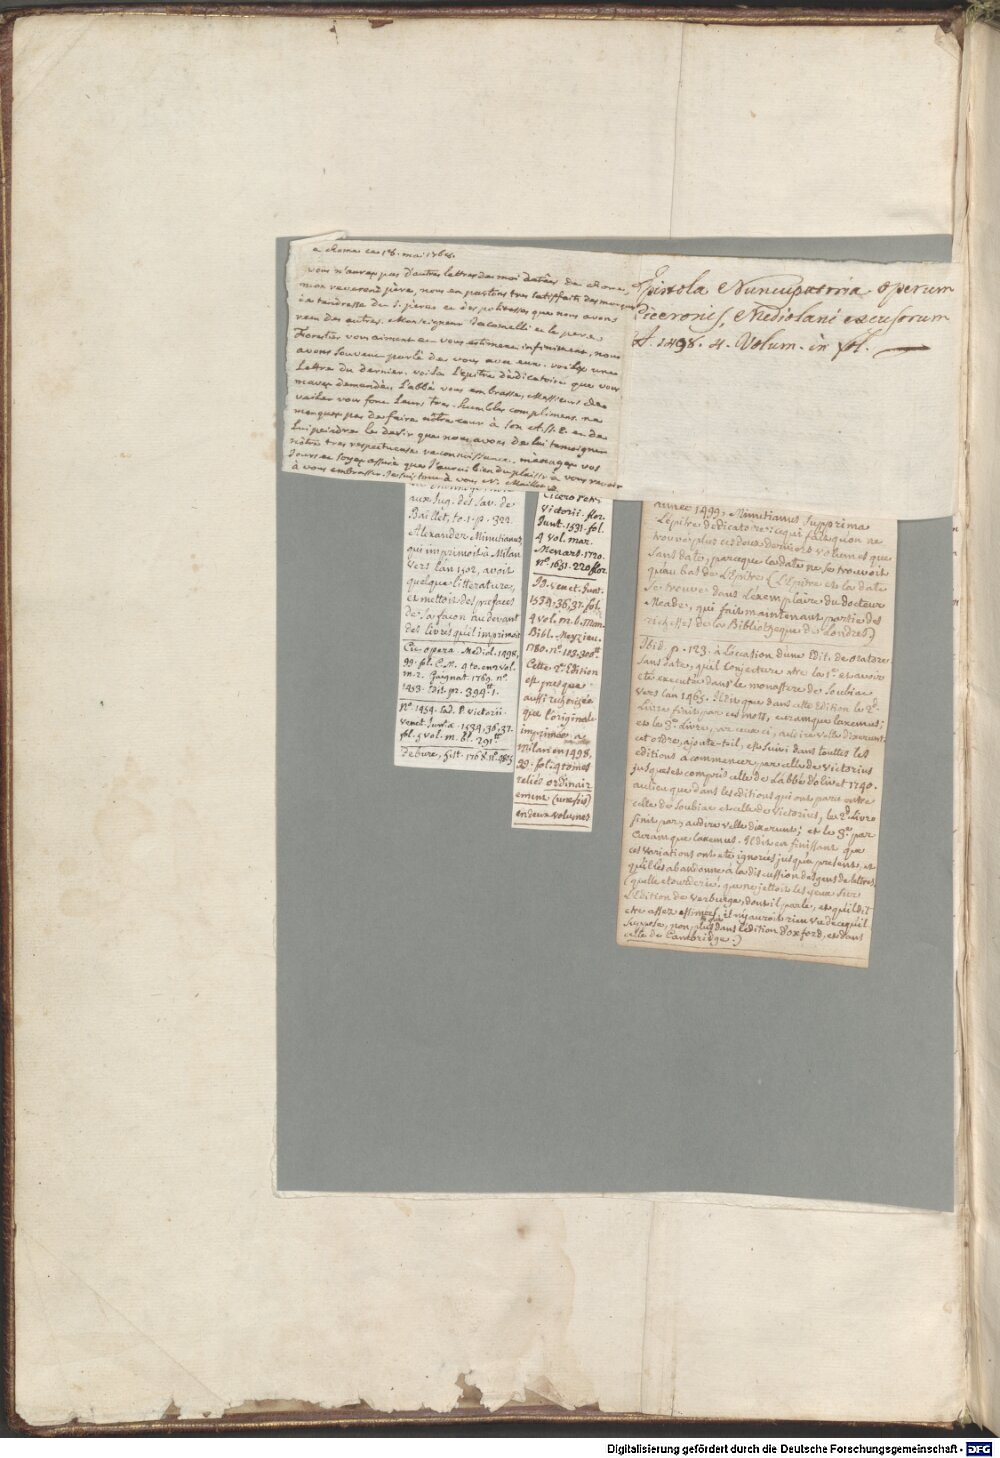 a Rome ce 18. mai 1768.
vous n'aurez pas d'autres lettres de moi datées de Rome,
mon reverend père, nous en partons tres satisfaits des marques
de tendresse du S. père et des politesses que nous avons
reçu des autres. Monseigneur Jacomelli et le pere
Forestier vous aiment et vous estiment infiniment, nous
avons souvent parlé de vous avec eux. voilà une
Lettre du dernier. voila L'epitre dédicatoire que vous
m'avez demandée. L'abbé vous embrasse, Messieurs de
vous font Leurs tres humbles compliments. ne
manquez pas de faire nôtre cour à son A. et de
Lui peindre le desir que nous avons de lui temoigner
nôtre tres respectueuse reconnoissance. menagez vos
jours et soyez assuré que j'aurai bien du plaisir à vous revoir
à vous embrasser. je suis tout à vous
Epistola Nuncupatoria operum
Ciceronis, Mediolani excusorum
A. 1498. 4. Volum. in fol.
aux Jug. des Sav. de
Baillet, to. 1. p. 322.
Alexander Minutianus,
qui imprimoit à Milan
vers l'an 1502, avoit
quelque litterature,
et mettoit des prefaces
de sa façon au devant
des livres qu'il imprimoit
Cic. opera. Mediol. 1498,
99. fol. C. M. 4 to. en 2 vol.
m. r. Gaignat 1769. nº.
1453. Edit. pr. 394.tt 1.
nº. 1454. Ead. P. Victorii.
venet. Junta. 1534, 36, 37.
fol. 5 vol. m. bl. 291tt
debure, hist. 1768. nº.
Cicero Petri
Victorii. flor.
Junt. 1531. fol.
4 vol. mar.
Menars. 1720.
nº. 1651. 220 flor.
Id. venet. Junt.
1534, 36, 37. fol.
4 vol. m. b. Man.
Bibl. Meyzieu.
1780. nº. 183. 300tt
Cette 2e. Edition
est presque
aussi recherchée
que l'originale
imprimée a
milan en 1498,
99. fol. 4 tomes
reliés ordinair
ement (une fois)
en deux volumes
année 1499, Minutianus supprima
L'epitre dedicatoire; ce qui fait qu'on ne
trouve plus ces deux derniers volumes que
sans date, parceque la date ne se trouvoit
qu'au bas de L'Epitre. (L'Epitre et la date
se trouve dans L'exemplaire du docteur
Meade, qui fait maintenant partie des
richesses de la Bibliotheque de Londres)
Ibid. p. 123. à L'ocasion d'une Edit. de oratore
sans date, qu'il conjecture etre la 1e. et avoir
eté executée dans le monastere de Soubiac
vers l'an 1465. Il dit que dans cette Edition le 2e.
Livre finit par ces mots, curamque laxemus;
et le 3e. Livre, par ceux ci, audire velle dixerunt.
cet ordre, ajoute-t-il, est suivi dans toutes les
editions à commencer par celle de Victorius
jusques et compris celle de L'abbé d'olivet 1740.
au lieu que dans les editions qui ont paru entre
celle de Soubiac et celle de Victorius, le 2d. Livre
finit par, audire velle dixerunt; et le 3e. par
curamque laxemus. Il dit en finissant que
ces variations ont eté ignorées jusqu'à present, et
qu'il les abandonne à la discussion des gens de lettres.
(quelle etourderie! que ne jettoit les yeux sur
L'Edition de Verburge, dont il parle, et qu'il dit
etre assez estimée, il n'y auroit rien vu de ce qu'il
suppose, non plus que dans l'edition d'oxford, et dans
celle de Cambridge.)
Digitalisierung gefördert durch die Deutsche Forschungsgemeinschaft - DFG